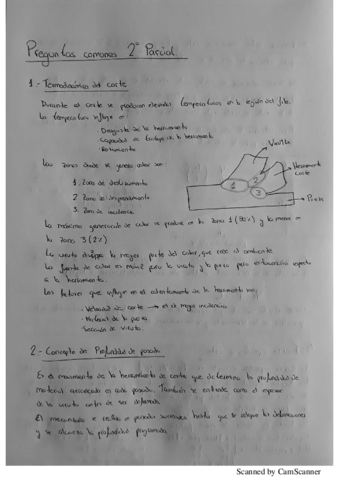 Preguntas comunes 2º Parcial
1.- Termodinámica del corte
Durante el corte se producen elevadas temperaturas en la región del filo.
La temperatura influye en:
- Desgaste de la herramienta
- Capacidad de trabajo de la herramienta
- Rozamiento
Las zonas donde se genera calor son:
1. Zona de
2. Zona de desprendimiento
3. Zona de incidencia
Viruta
Herramienta
corte
Pieza
1
2
3
La máxima generación de calor se produce en la zona 1 (80%) y la menor en
la zona 3 (2%)
La viruta disipa la mayor parte del calor, que cede al ambiente
La fuente de calor es móvil para la viruta y la pieza pero estacionaria respecto
a la herramienta.
Los factores que influyen en el calentamiento de la herramienta son:
- Velocidad de corte → el de mayor incidencia
- Material de la pieza
- Sección de viruta.
2.- Concepto de Profundidad de pasada
Es el movimiento de la herramienta de corte que determina la profundidad de
material arrancado en cada pasada. También se entiende como el espesor
de la viruta antes de ser deformada.
El mecanizado se realiza en pasadas sucesivas hasta que
y se alcanza la profundidad programada.
Scanned by CamScanner